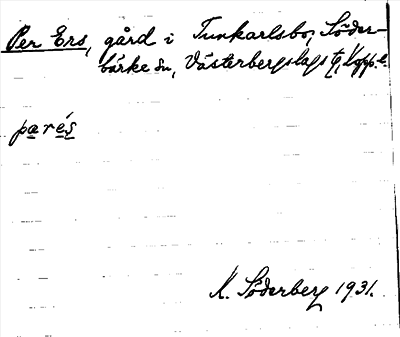 Per Ers, gård i Tunkarlsbo, Söder-
bärke sn, Västerbergslags tg, Kopp. l.
parés
K. Söderberg 1931.